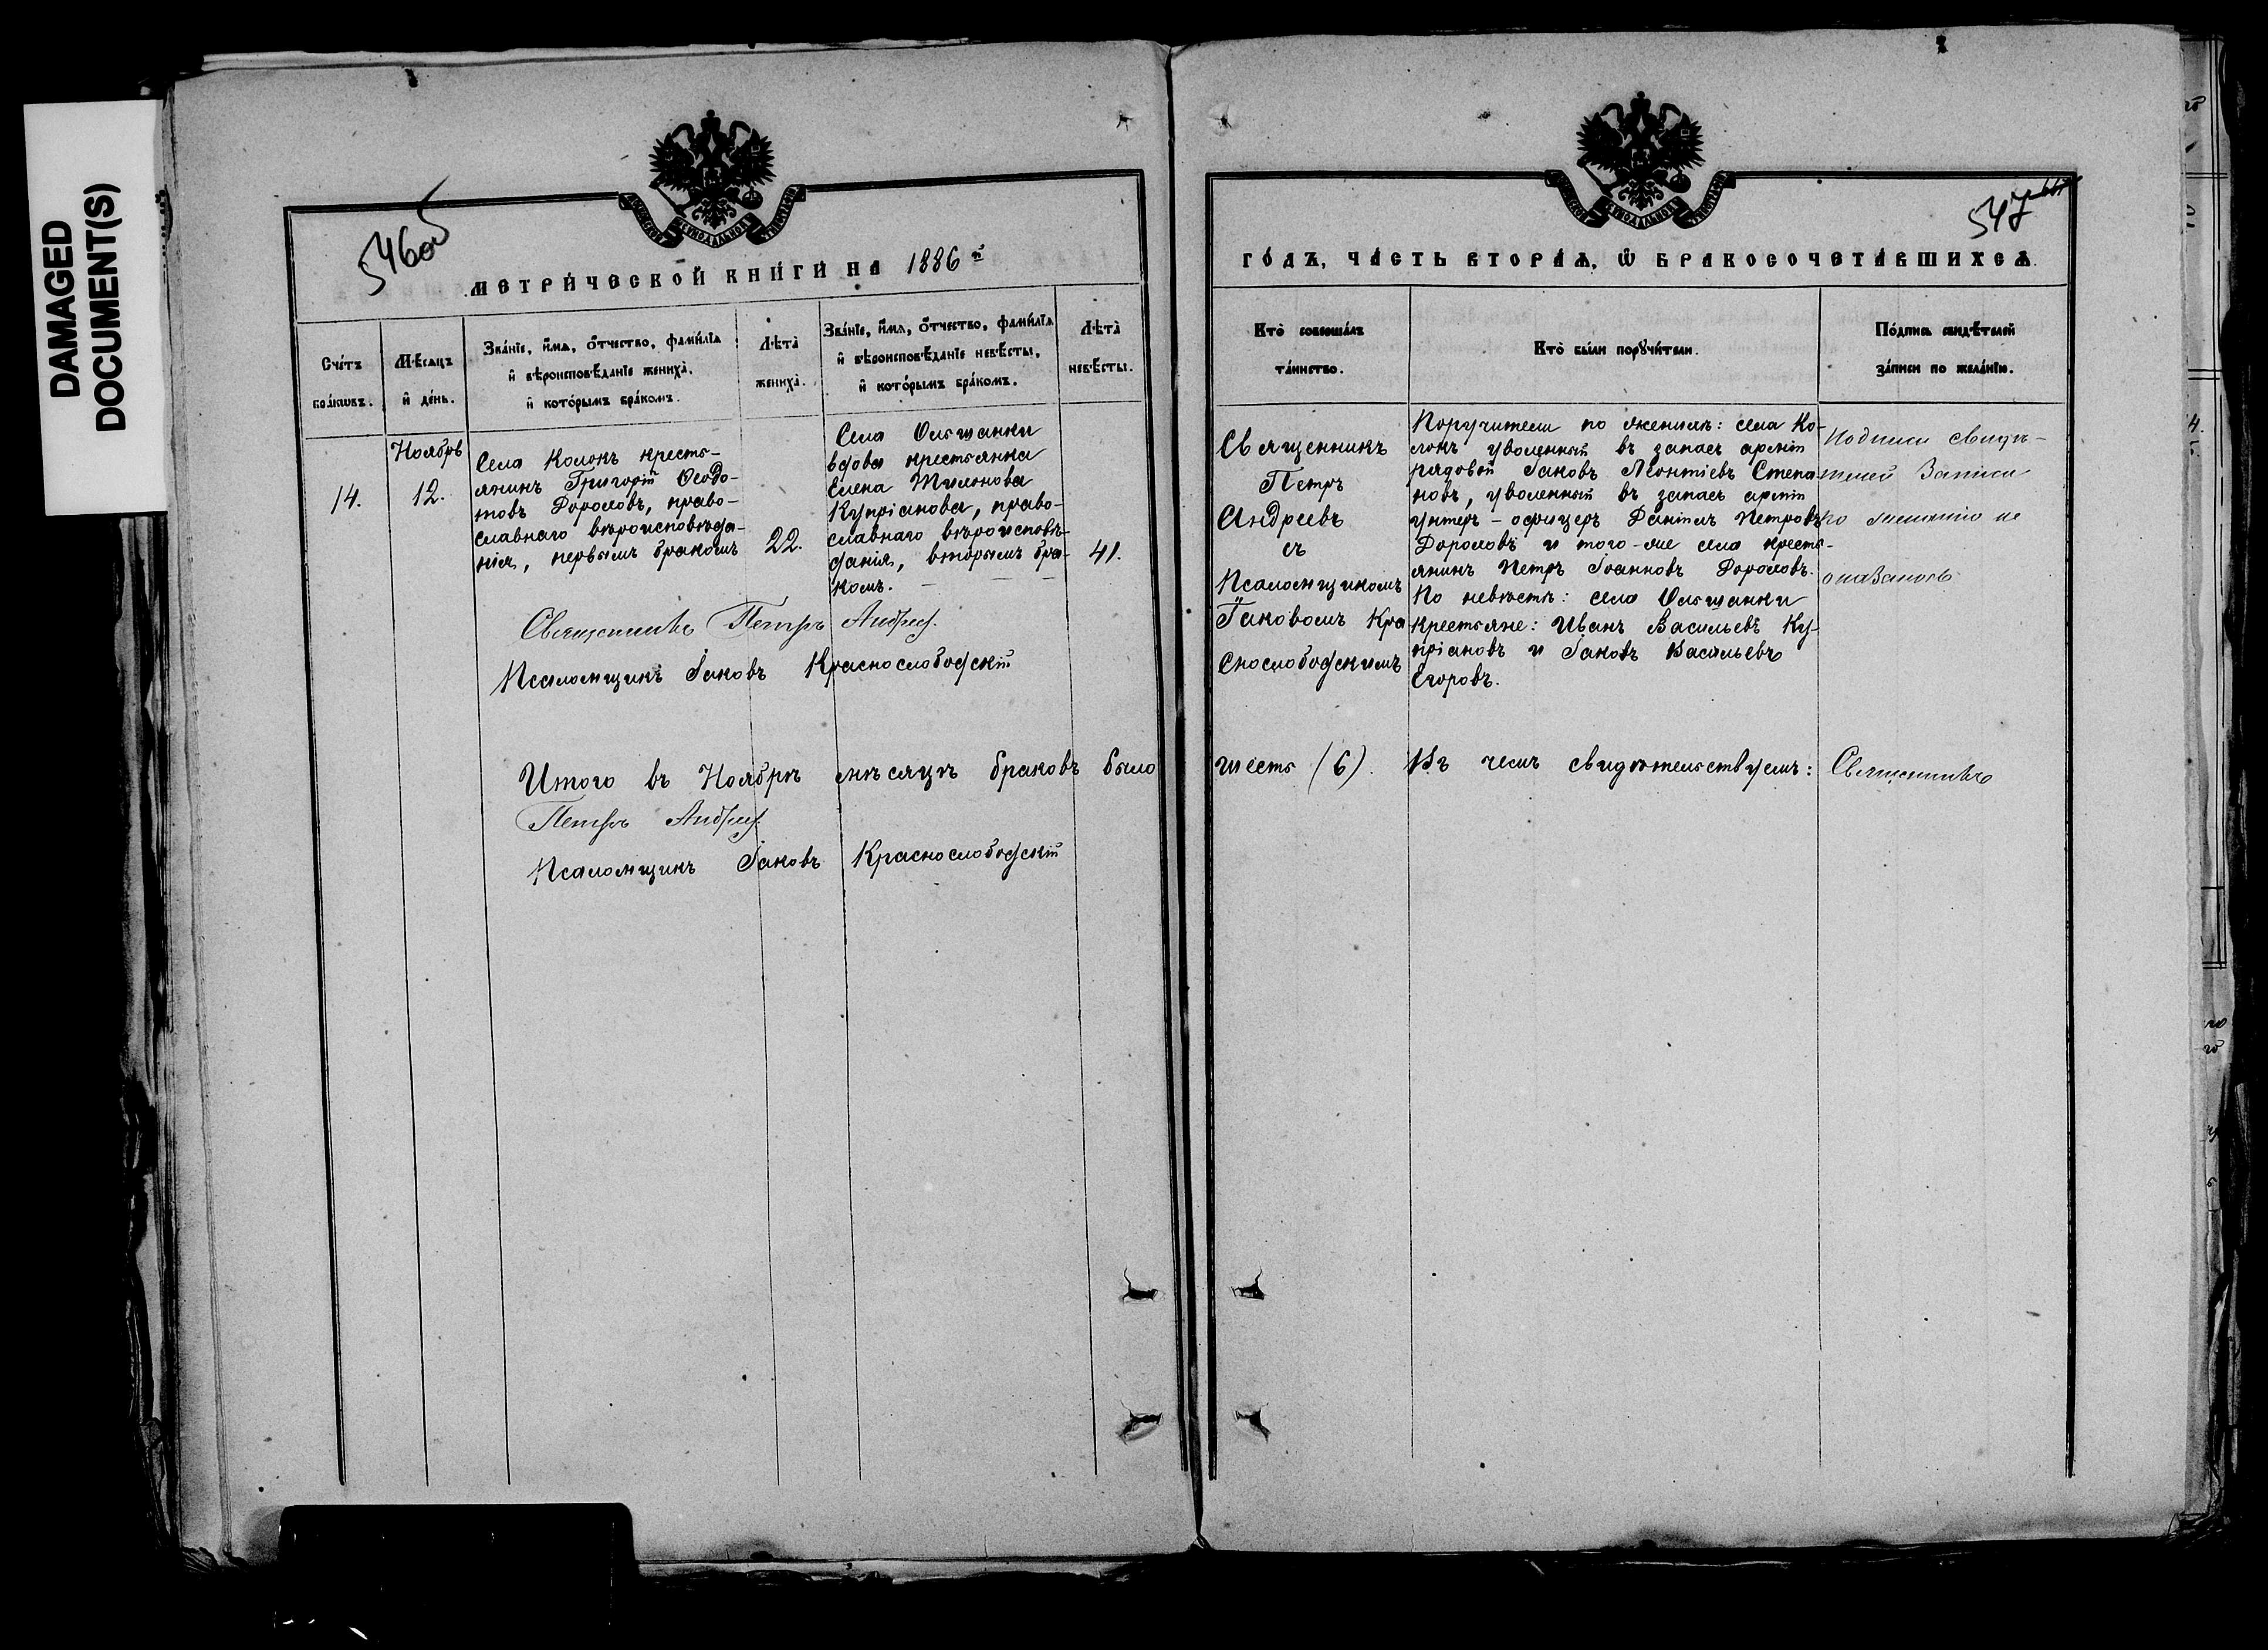 DAMAGED
DOCUMENT(S)
546об
МЕТРИЧЕСКОЙ КНИГИ НА 1886 й
Счетъ
браковъ.
Мѣсяцъ
и день.
Званіе, имя, отчество, фамилія
и вѣроисповѣданіе жениха,
и которымъ бракомъ.
Лѣта
жениха.
Званіе, имя, отчество, фамилія
и вѣроисповѣданіе невѣсты,
и которымъ бракомъ.
Лѣта
невѣсты.
14.
Ноябрь
12.
Села Колокъ кресть-
янинъ Григорій Ѳеодо-
товъ Дороловъ, право-
славнаго вѣроисповѣда-
нія, первымъ бракомъ
22.
Села Ольшанки
вдова крестьянка
Елена
Купріанова, право-
славнаго вѣроисповѣ-
данія, вторымъ бра-
комъ.
41.
Священникъ Петръ Андреев.
Псаломщикъ Іаковъ Краснослободскій
Итого въ Ноябрѣ мѣсяцѣ браковъ было
Петръ Андреев.
Псаломщикъ Іаковъ Краснослободскій
547
ГОДЪ, ЧАСТЬ ВТОРАЯ, Ѡ БРАКОСОЧЕТАВШИХСЯ.
Кто совершалъ
таинство.
Кто были поручители.
Подпись свидѣтелей
записи по желанію.
Священникъ
Петръ
Андреевъ
съ
Псаломщикомъ
Іаковомъ Кра
снослободскимъ
Поручители по женихѣ: села Ко-
локъ уволенный въ запасъ арміи
рядовой Іаковъ Леонтіевъ Степа
новъ, уволенный въ запасъ арміи
унтеръ-офицеръ Даніилъ Петровъ
Дороловъ и того-же села кресть-
янинъ Петръ Іоанновъ Дороловъ.
По невѣстѣ: села Ольшанки
крестьяне: Иванъ Васильевъ Ку-
пріановъ и Іаковъ Васильевъ
Егоровъ.
Подписи свидѣ-
телей Записи
по желанію не
оказалось
шесть (6). Въ чемъ свидѣтельствуемъ: Священникъ